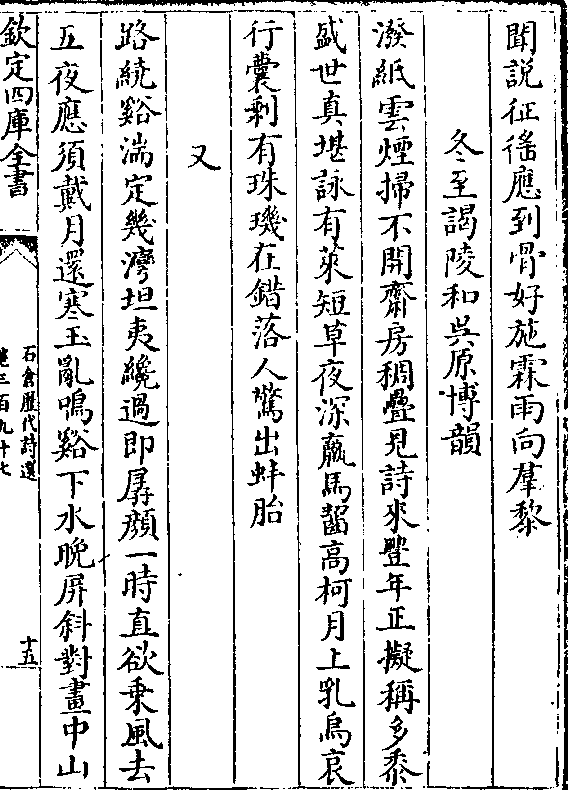 聞說征徭應到骨好施霖雨向羣黎
冬至謁陵和吳原博韻
潑紙雲煙掃不開齋房稠疊見詩來豐年正擬稱多黍
盛世真堪詠有萊短草夜深羸馬齧高柯月上乳烏哀
行囊剩有珠璣在錯落人驚出蚌胎
又
路繞谿湍定幾灣坦夷纔過即孱顔一時直欲乗風去
五夜應須戴月還寒玉亂鳴谿下水晚屏斜對畫中山
欽定四庫全書
石倉歷代詩選
卷三百九十七
十五